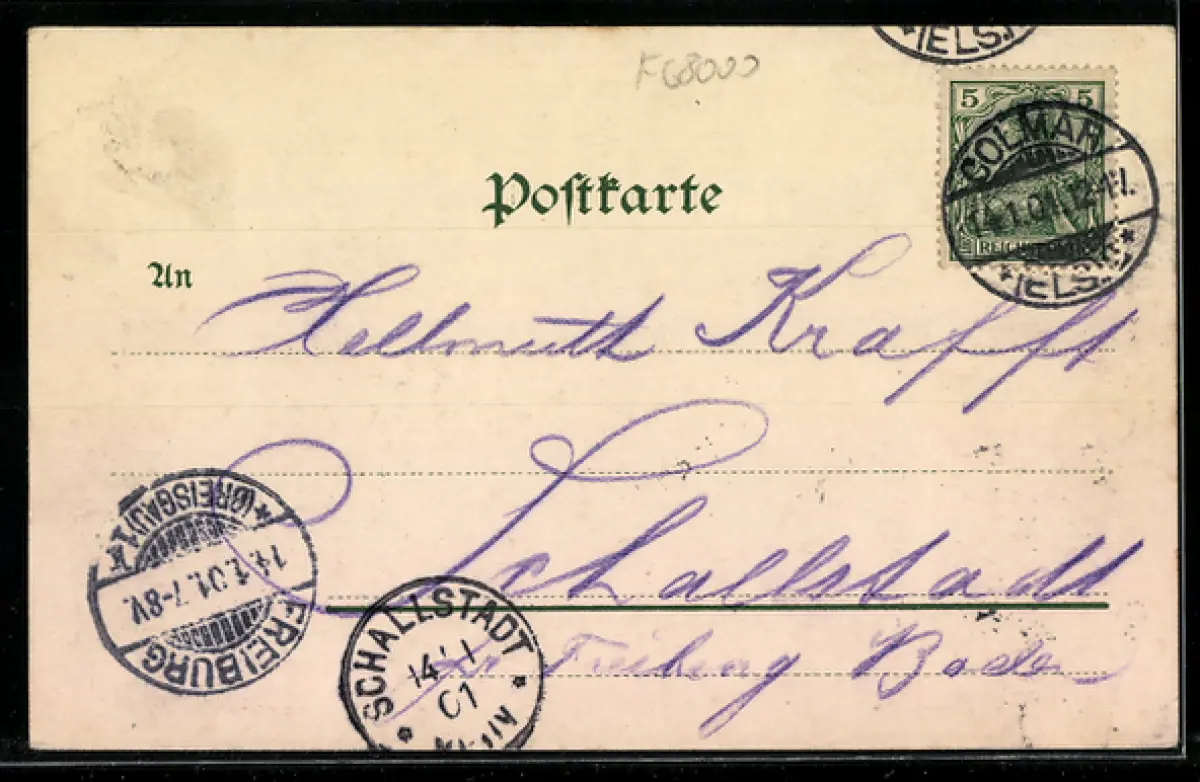 (ELS.)
FG8000
5 5
COLMAR
14.1.01.12-1
REICHSPOST
* (ELS.) *
Postkarte
An
Hellmuth Krafft
Schallstadt
Freiburg Baden
* (BREISGAU) 1 *
14.1.01.7-8V.
FREIBURG
SCHALLSTADT
14 1
01